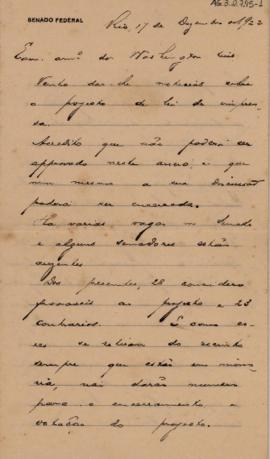 AG.3.2.7.95-1
SENADO FEDERAL
Rio, 17 de Dezembro de 1922
Exm. am.º dr. Washington Luis
Venho dar-lhe noticias sobre
o projecto de lei de impren-
sa.
Acredito que não poderá ser
approvado neste anno, e que
nem mesmo a sua discussão
poderá ser encerrada.
Ha varias vagas no Senado
e alguns senadores estão
ausentes
Dos presentes, 28 considero
favoraveis ao projecto e 23
contrarios. E como es-
es se retiram do recinto
sempre que estão em mino-
ria, não darão numero
para o encerramento e
votação do projecto.